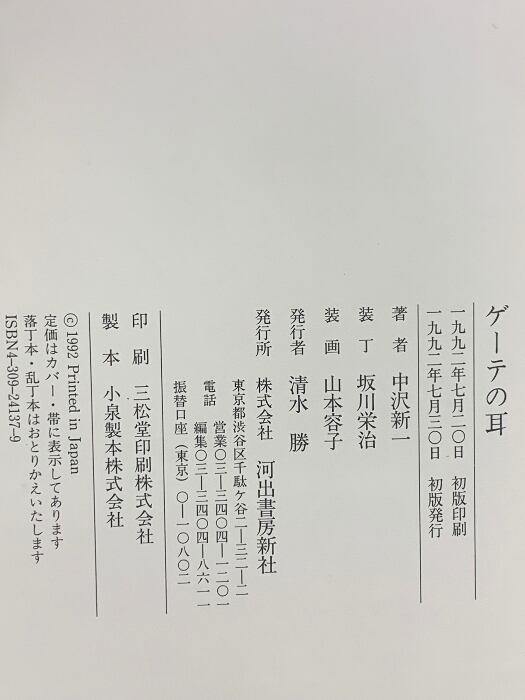 ゲーテの耳
一九九二年七月二〇日 初版印刷
一九九二年七月三〇日 初版発行
著者 中沢新一
装丁 坂川栄治
装画 山本容子
発行者 清水 勝
発行所 株式会社 河出書房新社
東京都渋谷区千駄ケ谷二―三二―二
電話 営業〇三―三四〇四―一二〇一
編集〇三―三四〇四―八六一一
振替口座(東京)〇―一〇八〇二
印刷 三松堂印刷株式会社
製本 小泉製本株式会社
©1992 Printed in Japan
定価はカバー・帯に表示してあります
落丁本・乱丁本はおとりかえいたします
ISBN4-309-24137-9